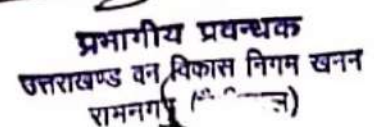 प्रभागीय प्रवन्धक
उत्तराखण्ड वन विकास निगम खनन
रामनगर